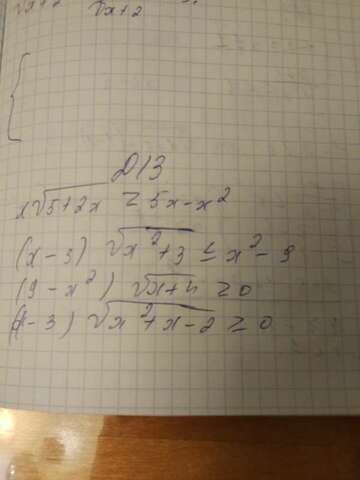 √x+2
Д/З
x√5+2x ≥ 5x-x²
(x-3) √x²+3 ≤ x²-9
(9-x²) √x+4 ≥ 0
(x-3) √x²+x-2 ≥ 0